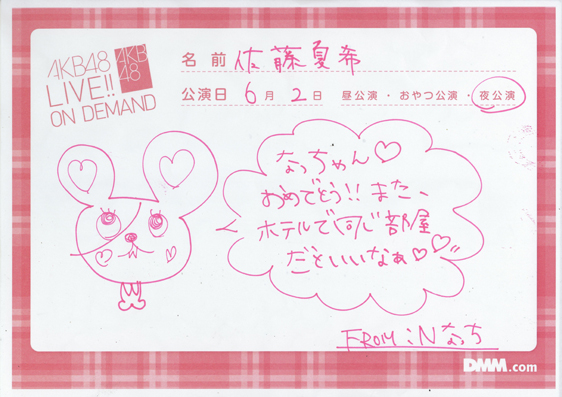 AKB48
LIVE!!
ON DEMAND
AKB
48
名 前 佐藤夏希
公演日 6月 2日 昼公演・おやつ公演・夜公演
なっちゃん♡
おめでとう!! また、
ホテルで同じ部屋
だといいなぁ♡♡"
FROM:Nなっち
DMM.com